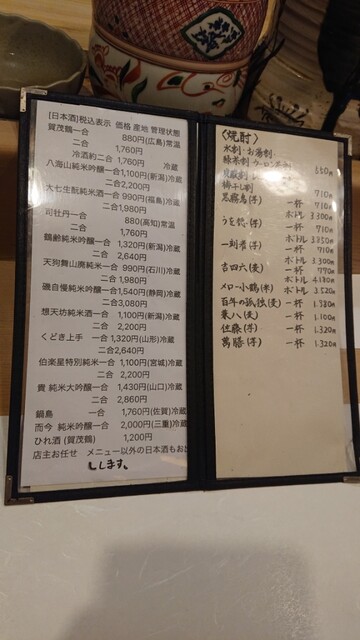 [日本酒]税込表示 価格 産地 管理状態
賀茂鶴一合 880円(広島)常温
二合 1,760円
冷酒約二合 1,760円 冷蔵
八海山純米吟醸一合1,100円(新潟)冷蔵
二合2,200円
大七生酛純米酒一合 990円(福島)冷蔵
二合1,980円
司牡丹一合 880(高知)常温
二合 1,760円
鶴齢純米吟醸一合 1,320円(新潟)冷蔵
二合 2,640円
天狗舞山廃純米一合 990円(石川)冷蔵
二合 1,980円
磯自慢純米吟醸一合1,540円(静岡)冷蔵
二合3,080円
想天坊純米酒一合 1,100円(新潟)冷蔵
二合 2,200円
くどき上手 一合 1,320円(山形)冷蔵
二合2,640円
伯楽星特別純米一合 1,100円(宮城)冷蔵
二合 2,200円
貴 純米大吟醸一合 1,430円(山口)冷蔵
二合 2,860円
鍋島 一合 1,760円(佐賀)冷蔵
而今 純米吟醸一合 2,000円(三重)冷蔵
ひれ酒 (賀茂鶴) 1,200円
店主お任せ メニュー以外の日本酒もお出
しします。
〈焼酎〉
水割・お湯割
緑茶割 ウーロン茶割 550円
炭酸割
梅干し割 710円
黒霧島(芋) 一杯 710円
ボトル 3,300円
一杯 710円
ボトル
一刻者(芋) 一杯
ボトル 3,300円
吉四六(麦) 一杯 770円
ボトル
メロー小鶴(米) ボトル
百年の孤独(麦) 一杯 1,320円
兼八(麦) 一杯 1,100円
佐藤(芋) 一杯 1,320円
萬膳(芋) 一杯 1,320円